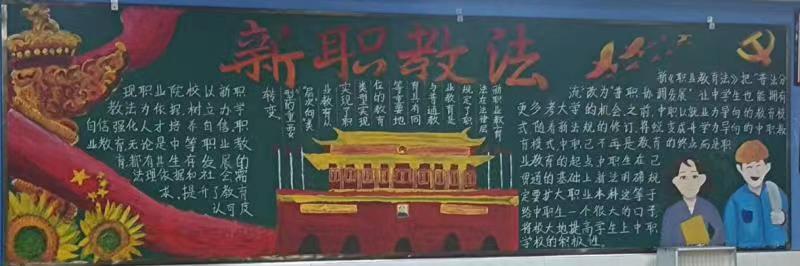 新职教法
现职业院校以新职
教法为依据,树立办学
自信,强化人才培养自信,职
业教育,无论是中等职业教
育,都有其生存发展的
法理依据和社会需
求,提升了教育
认可度
新职业教育
法在法律层
规定了职
业教育是
与普通教
育具有同
等重要地
位的教育
类型,实现
实现了职
"层次"向"类
型"的重要
转变
新《职业教育法》把"普职分
流"改为"普职协调发展",让中学生也能拥有
更多考大学的机会。之前,中职以就业为导向的教育模
式,随着新法规的修订,将统变成升学为导向的中职教
育模式,中职已不再是教育的终点,而是职
业教育的起点,中职生在已
贯通的基础上,新法明确规
定要扩大职业本科,这等于
给中职生一个很大的口子,
将极大地提高学生上中职
学校的积极性。